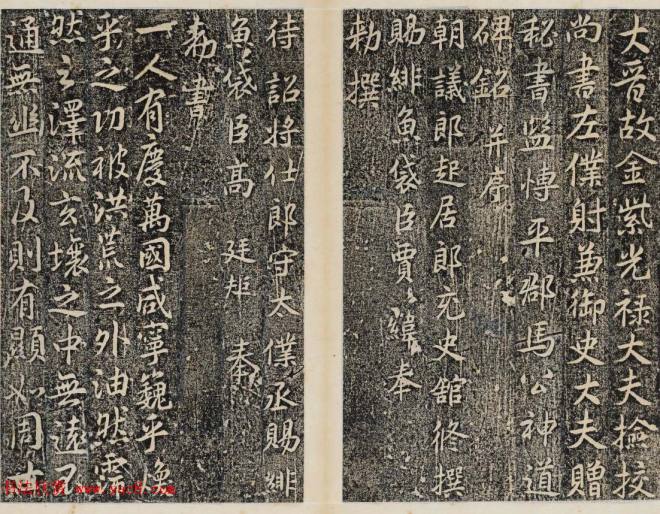 大晉故金紫光祿大夫撿挍
尚書左僕射兼御史大夫贈
秘書監愽平郡馬公神道
碑銘并序
朝議郎起居郎充史舘修撰
賜緋魚袋臣賈緯奉
勅撰
待詔將仕郎守太僕丞賜緋
魚袋臣高廷矩奉
勅書
一人有慶萬國咸寧巍乎煥
乎之功被洪荒之外油然霈
然之澤流玄壤之中無遠
通無幽不及則有顯如周